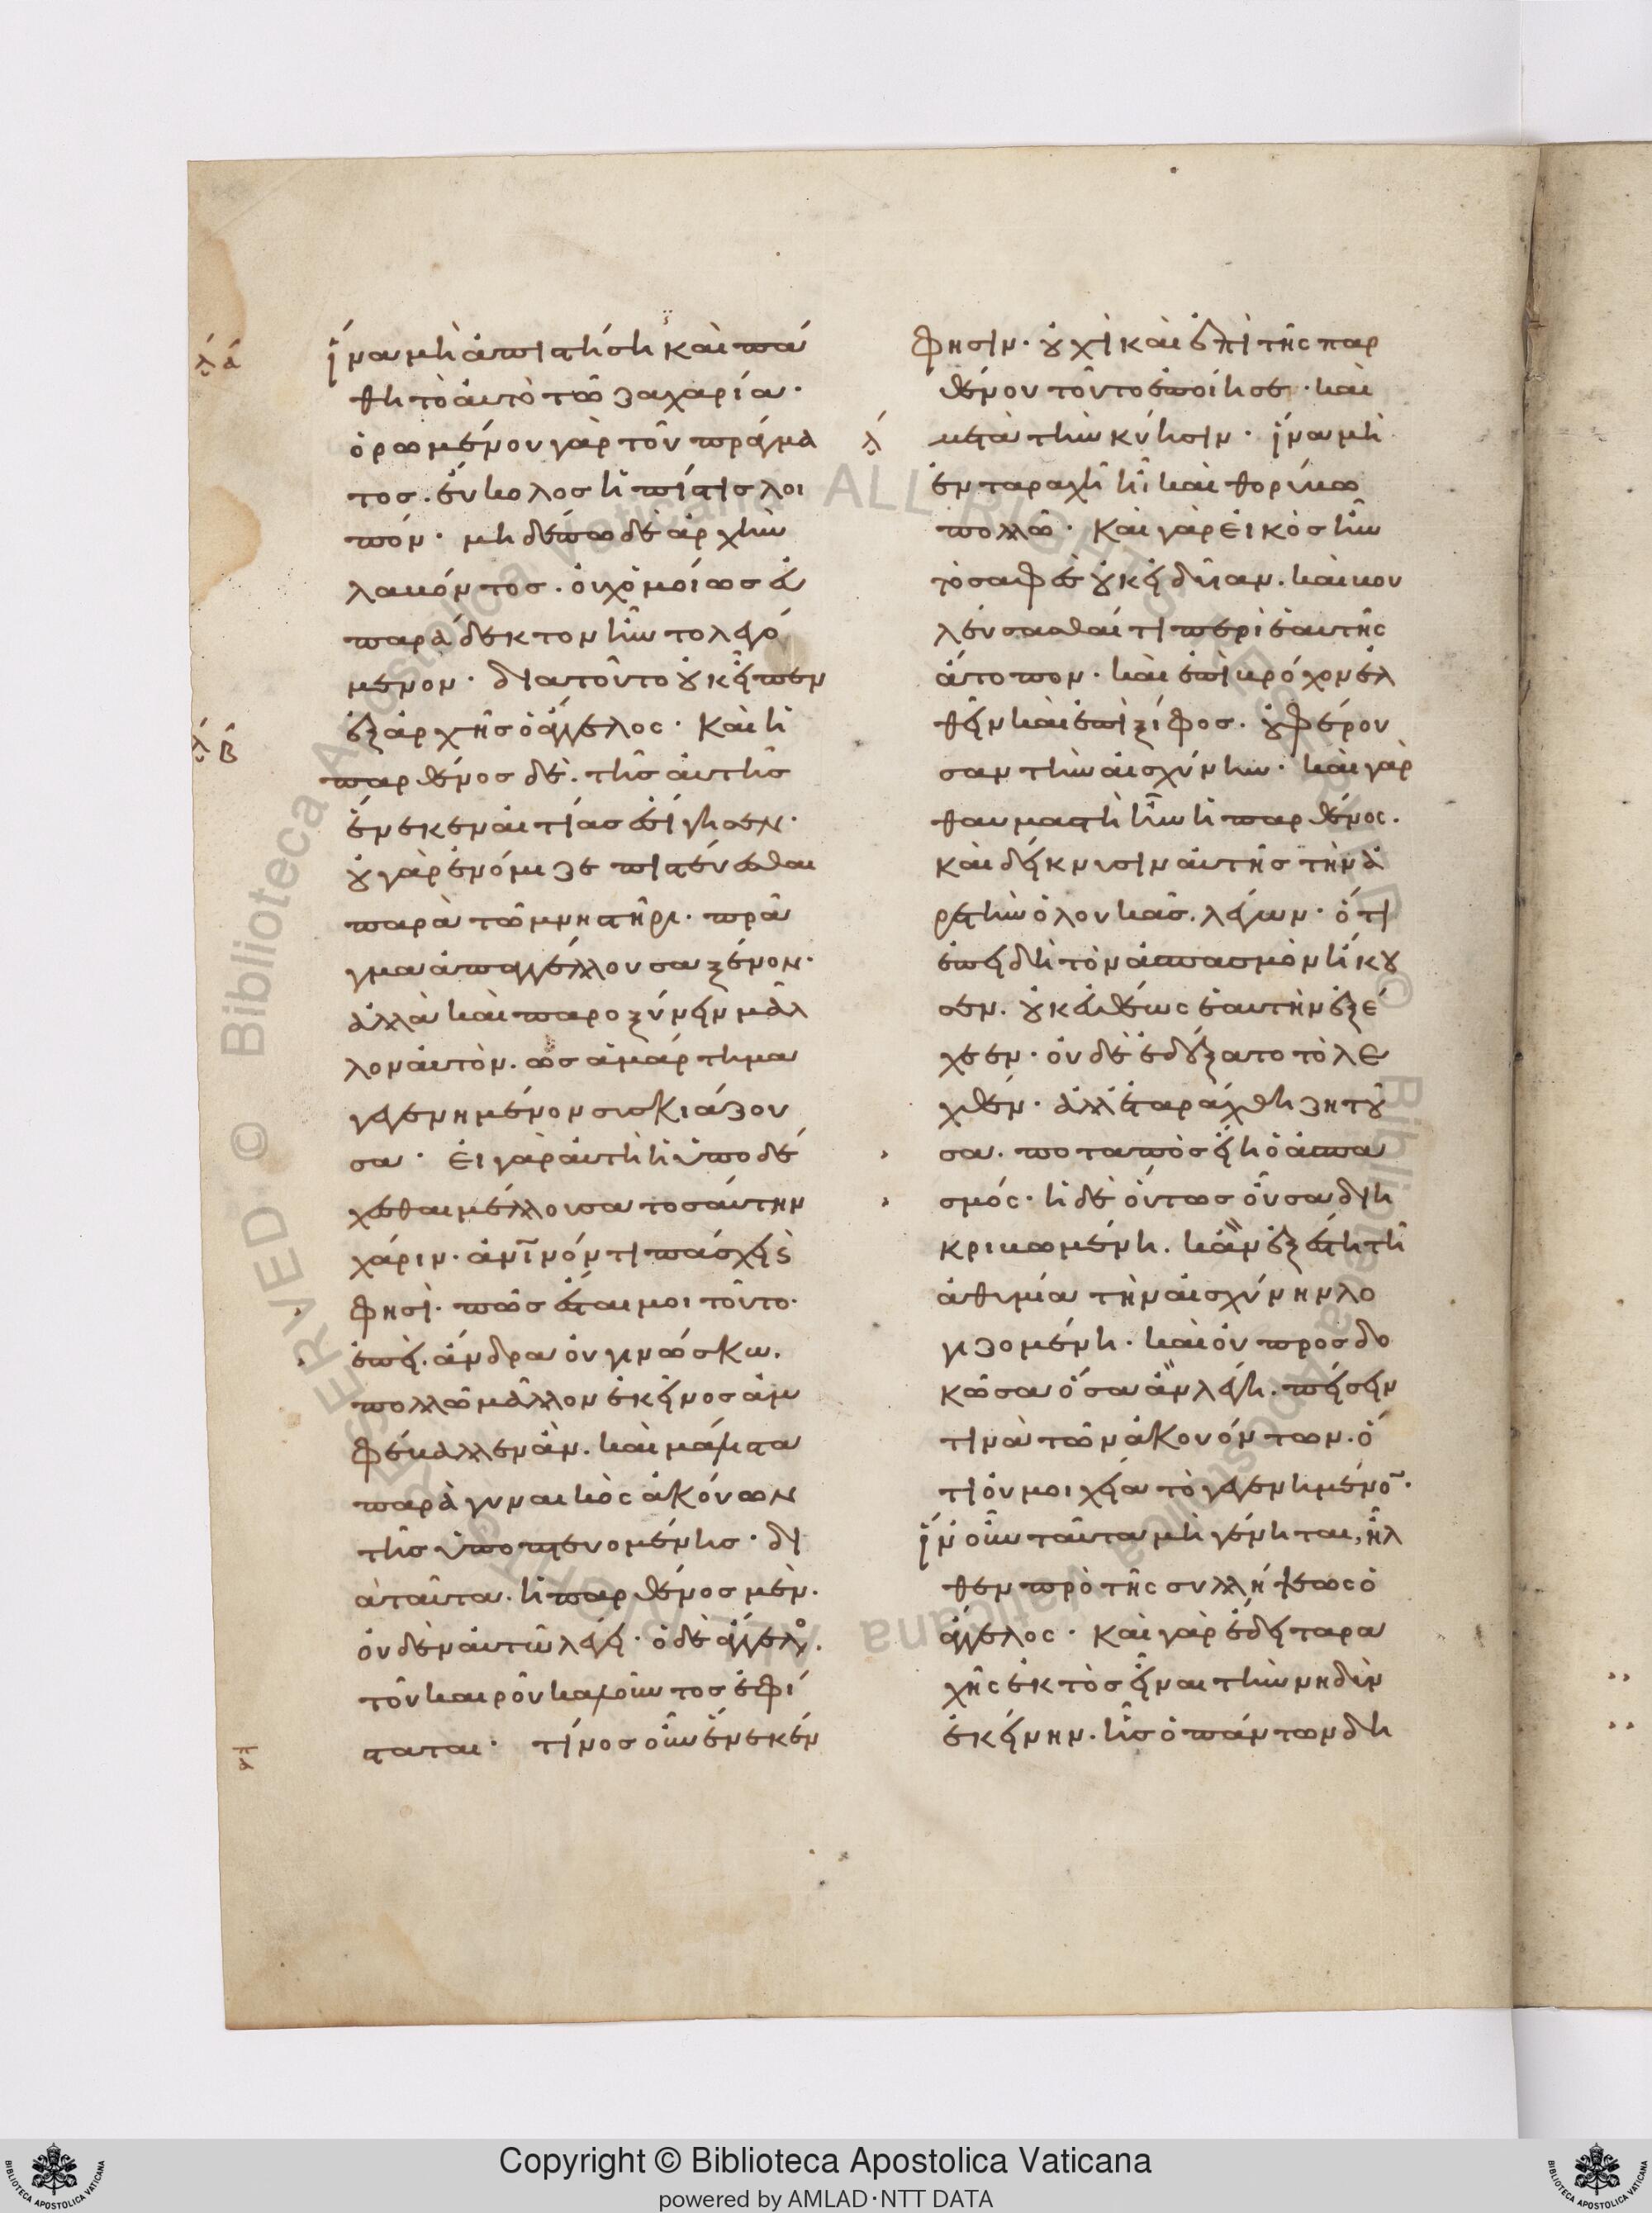 λα
ἵνα μὴ ἀπιστήσῃ καὶ πά
θῃ τὸ ἀυτὸ τῶ ζαχαρία·
ὁρωμένου γὰρ τοῦ πράγμα
τος. ἔυκολος ἡ πίστις λοι
πόν· μηδέπω δὲ ἀρχὴν
λαβόντος. ὀυχ ὁμοίως ἐυ
παράδεκτον ἦν τὸ λεγό
μενον· διατοῦτο ὀυκ εἶπεν
ἐξαρχῆς ὁ ἄγγελος· Καὶ ἡ
λβ
παρθένος δὲ. τῆς ἀυτῆς
ἕνεκεν ἀιτίας ἐσίγησεν·
ὀυ γὰρ ἐνόμιζε πιστέυεσθαι
παρὰ τῶ μνηστῆρι· πρᾶ
γμα ἀπαγγέλλουσα ξένον·
ἀλλὰ καὶ παροξύνειν μᾶλ
λον ἀυτὸν. ὡς ἁμάρτημα
γεγενημένον συσκιάζου
σα· ἐι γὰρ ἀυτὴ ἡ ὑποδέ
χεσθαι μέλλουσα τοσάυτην
χάριν· ἀνθρώπινόν τι πάσχει ϛ
φησὶ· πῶς ἔσται μοι τοῦτο·
ἐπεὶ. ἄνδρα ὀυ γινώσκω.
πολλῶ μᾶλλον ἐκεῖνος ἀμ
φέβαλλεν ἂν. καὶ μάλιστα
παρὰ γυναικὸς ἀκούων
τῆς ὑποπτευομένης· δι
ὰ ταῦτα. ἡ παρθένος μὲν.
ὀυδὲν ἀυτῶ λέγει· ὁ δὲ ἄγγελος.
τοῦ καιροῦ καλοῦντος ἐφί
σταται· τίνος οὖν ἕνεκέν
φησιν. ὀυχὶ καὶ ἐπὶ τῆς παρ
θένου τοῦτο ἐποίησε· καὶ
λ
μετὰ τὴν κύησιν· ἵνα μὴ
ἐν ταραχῆ ἦι καὶ θορύβω
πολλῶ· Καὶ γὰρ ἐικὸς ἦν
τὸ σαφὲς ὀυκ ειδυῖαν. καὶ βου
λέυσασθαί τι περὶ ἑαυτῆς
ἄτοπον· καὶ ἐπὶ βρόχον ἐλ
θεῖν καὶ ἐπὶ ξίφος. ὀυ φέρου
σαν τὴν ἀισχύνην· καὶ γὰρ
θαυμαστὴ ἦν ἡ παρθένος.
καὶ δείκνυσιν ἀυτῆς τὴν ἀ
ρετὴν ὁ λουκᾶς. λέγων· ὅτι
ἐπειδὴ τὸν ἀσπασμὸν ἤκου
σεν. ὀυκ ἐυθέως ἑαυτὴν ἐξέ
χεεν· ὀυδὲ ἐδέξατο τὸ λε
χθέν· ἀλλ ἐταράχθη ζητοῦ
σα. ποταπὸς ἔιη ὁ ἀσπα
σμός· ἡ δὲ ὄντως οὖσα διη
κριβωμένη. κἂν ἐξέστη τῆ
ἀθυμία τὴν ἀισχύνην λο
γιζομένη· καὶ ὀυ προσδο
κῶσα ὅσα ἂν λέγη. πείσειν
τινὰ τῶν ἀκουόντων. ὅ
τι ὀυ μοιχεία τὸ γεγενημένον·
ἵν οὖν ταῦτα μὴ γένηται, ἦλ
θεν πρὸ τῆς συλλήψεως ὁ
ἄγγελος· Καὶ γὰρ ἔδει ταρα
χῆς ἐκτὸς εἶναι τὴν νηδὺν
ἐκείνην. ἧς ὁ πάντων δη